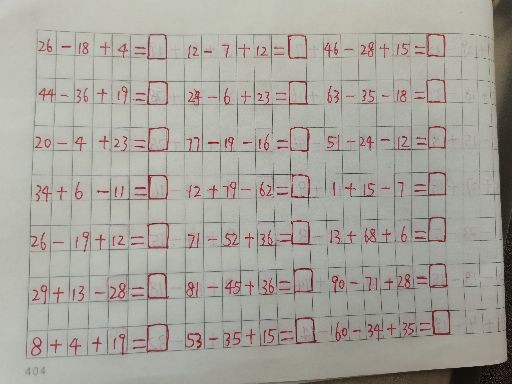 26-18+4=□ 12-7+12=□ 46-28+15=□
44-36+19=□ 28-6+23=□ 63-35-18=□
20-4+23=□ 77-19-16=□ 51-24-12=□
34+6-11=□ 12+79-62=□ 1+15-7=□
26-19+12=□ 71-52+36=□ 13+68+6=□
29+13-28=□ 81-45+36=□ 90-71+28=□
8+4+19=□ 53-35+15=□ 60-34+35=□
404